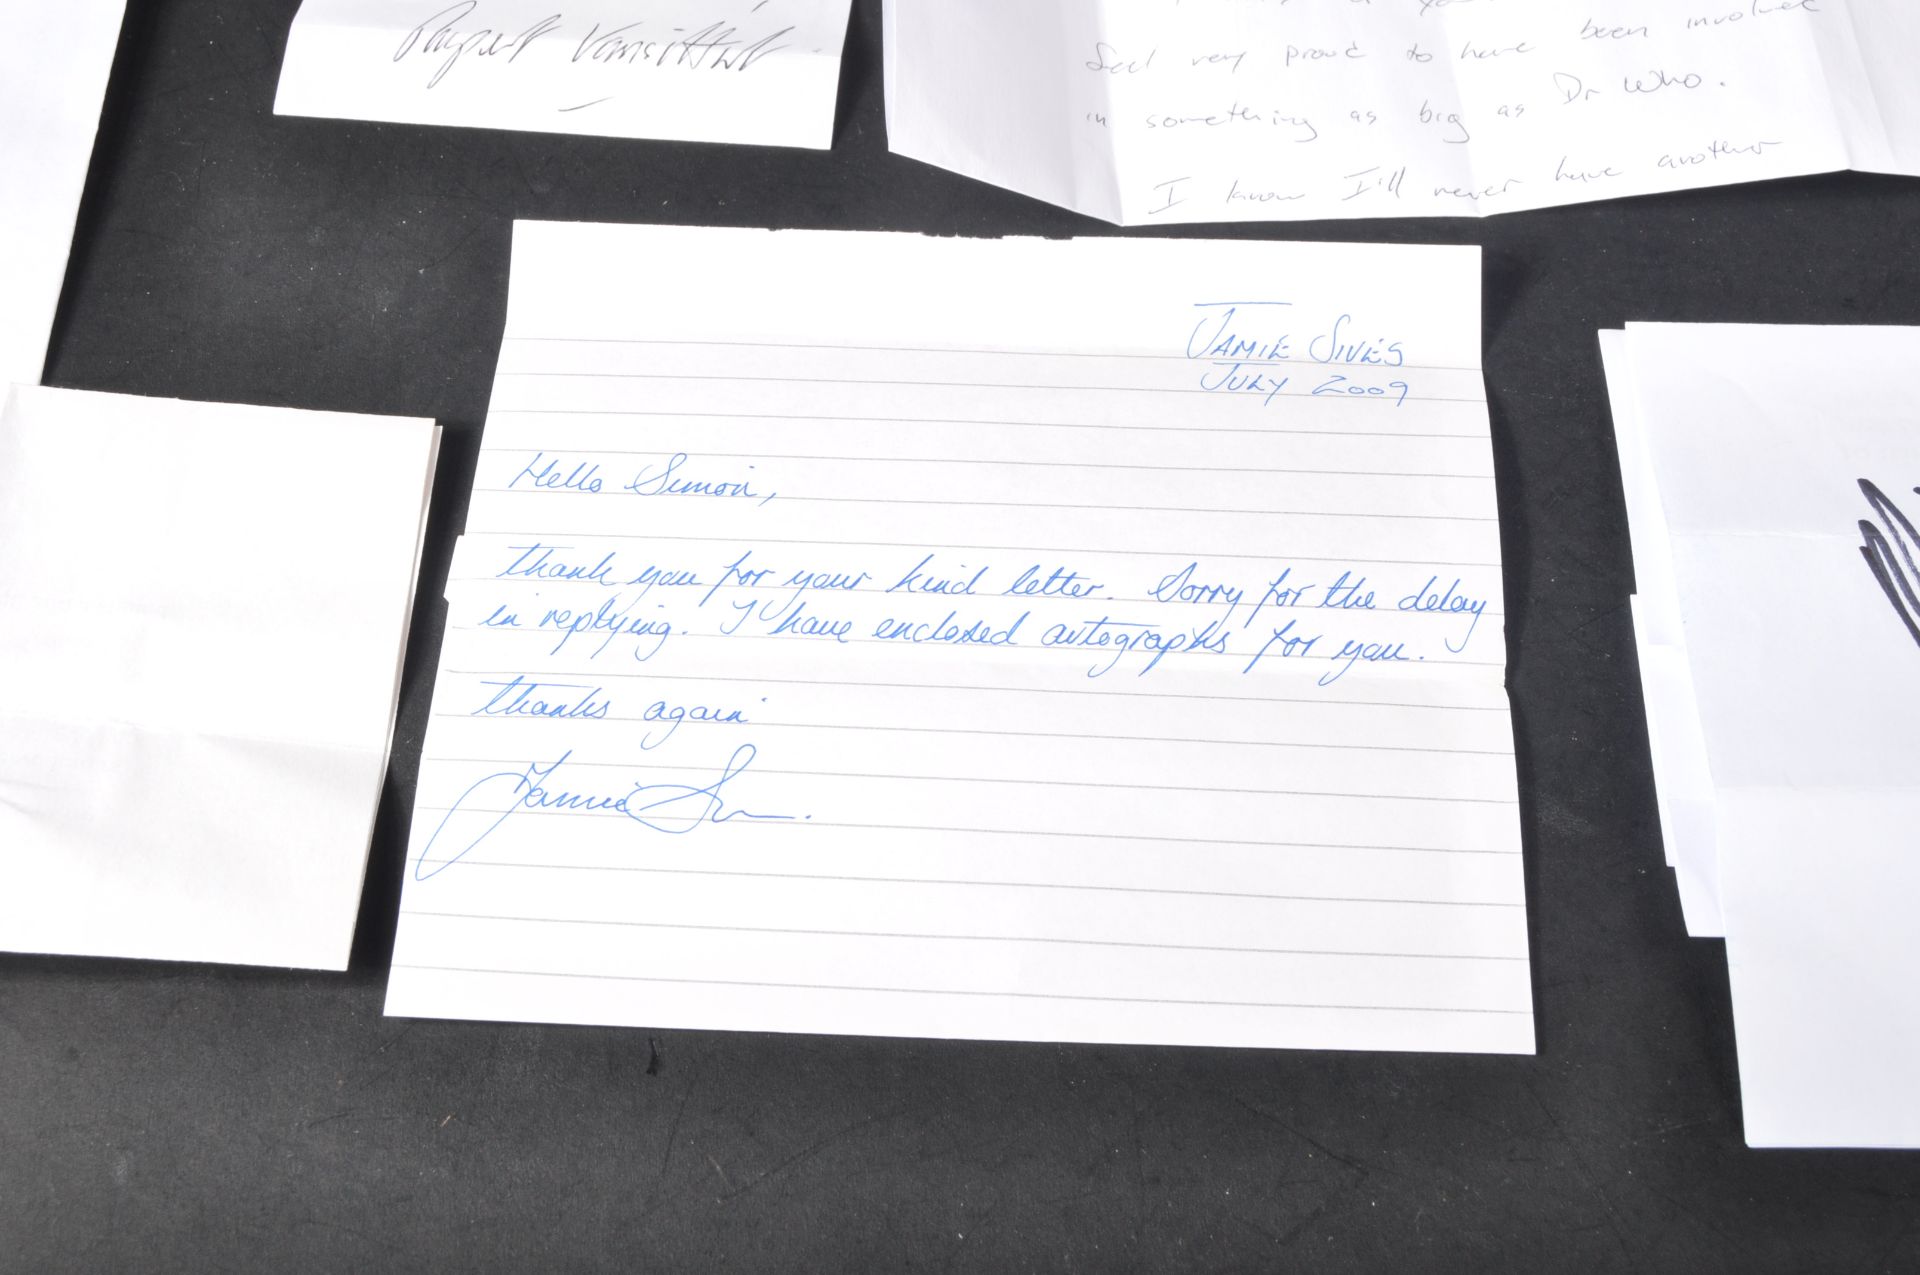 Rupert Vansittart
feel very proud to have been involved
in something as big as Dr Who.
I know I'll never have another
JAMIE SIVES
JULY 2009
Hello Simon,
thank you for your kind letter. Sorry for the delay
in replying. I have enclosed autographs for you.
thanks again
Jamie S